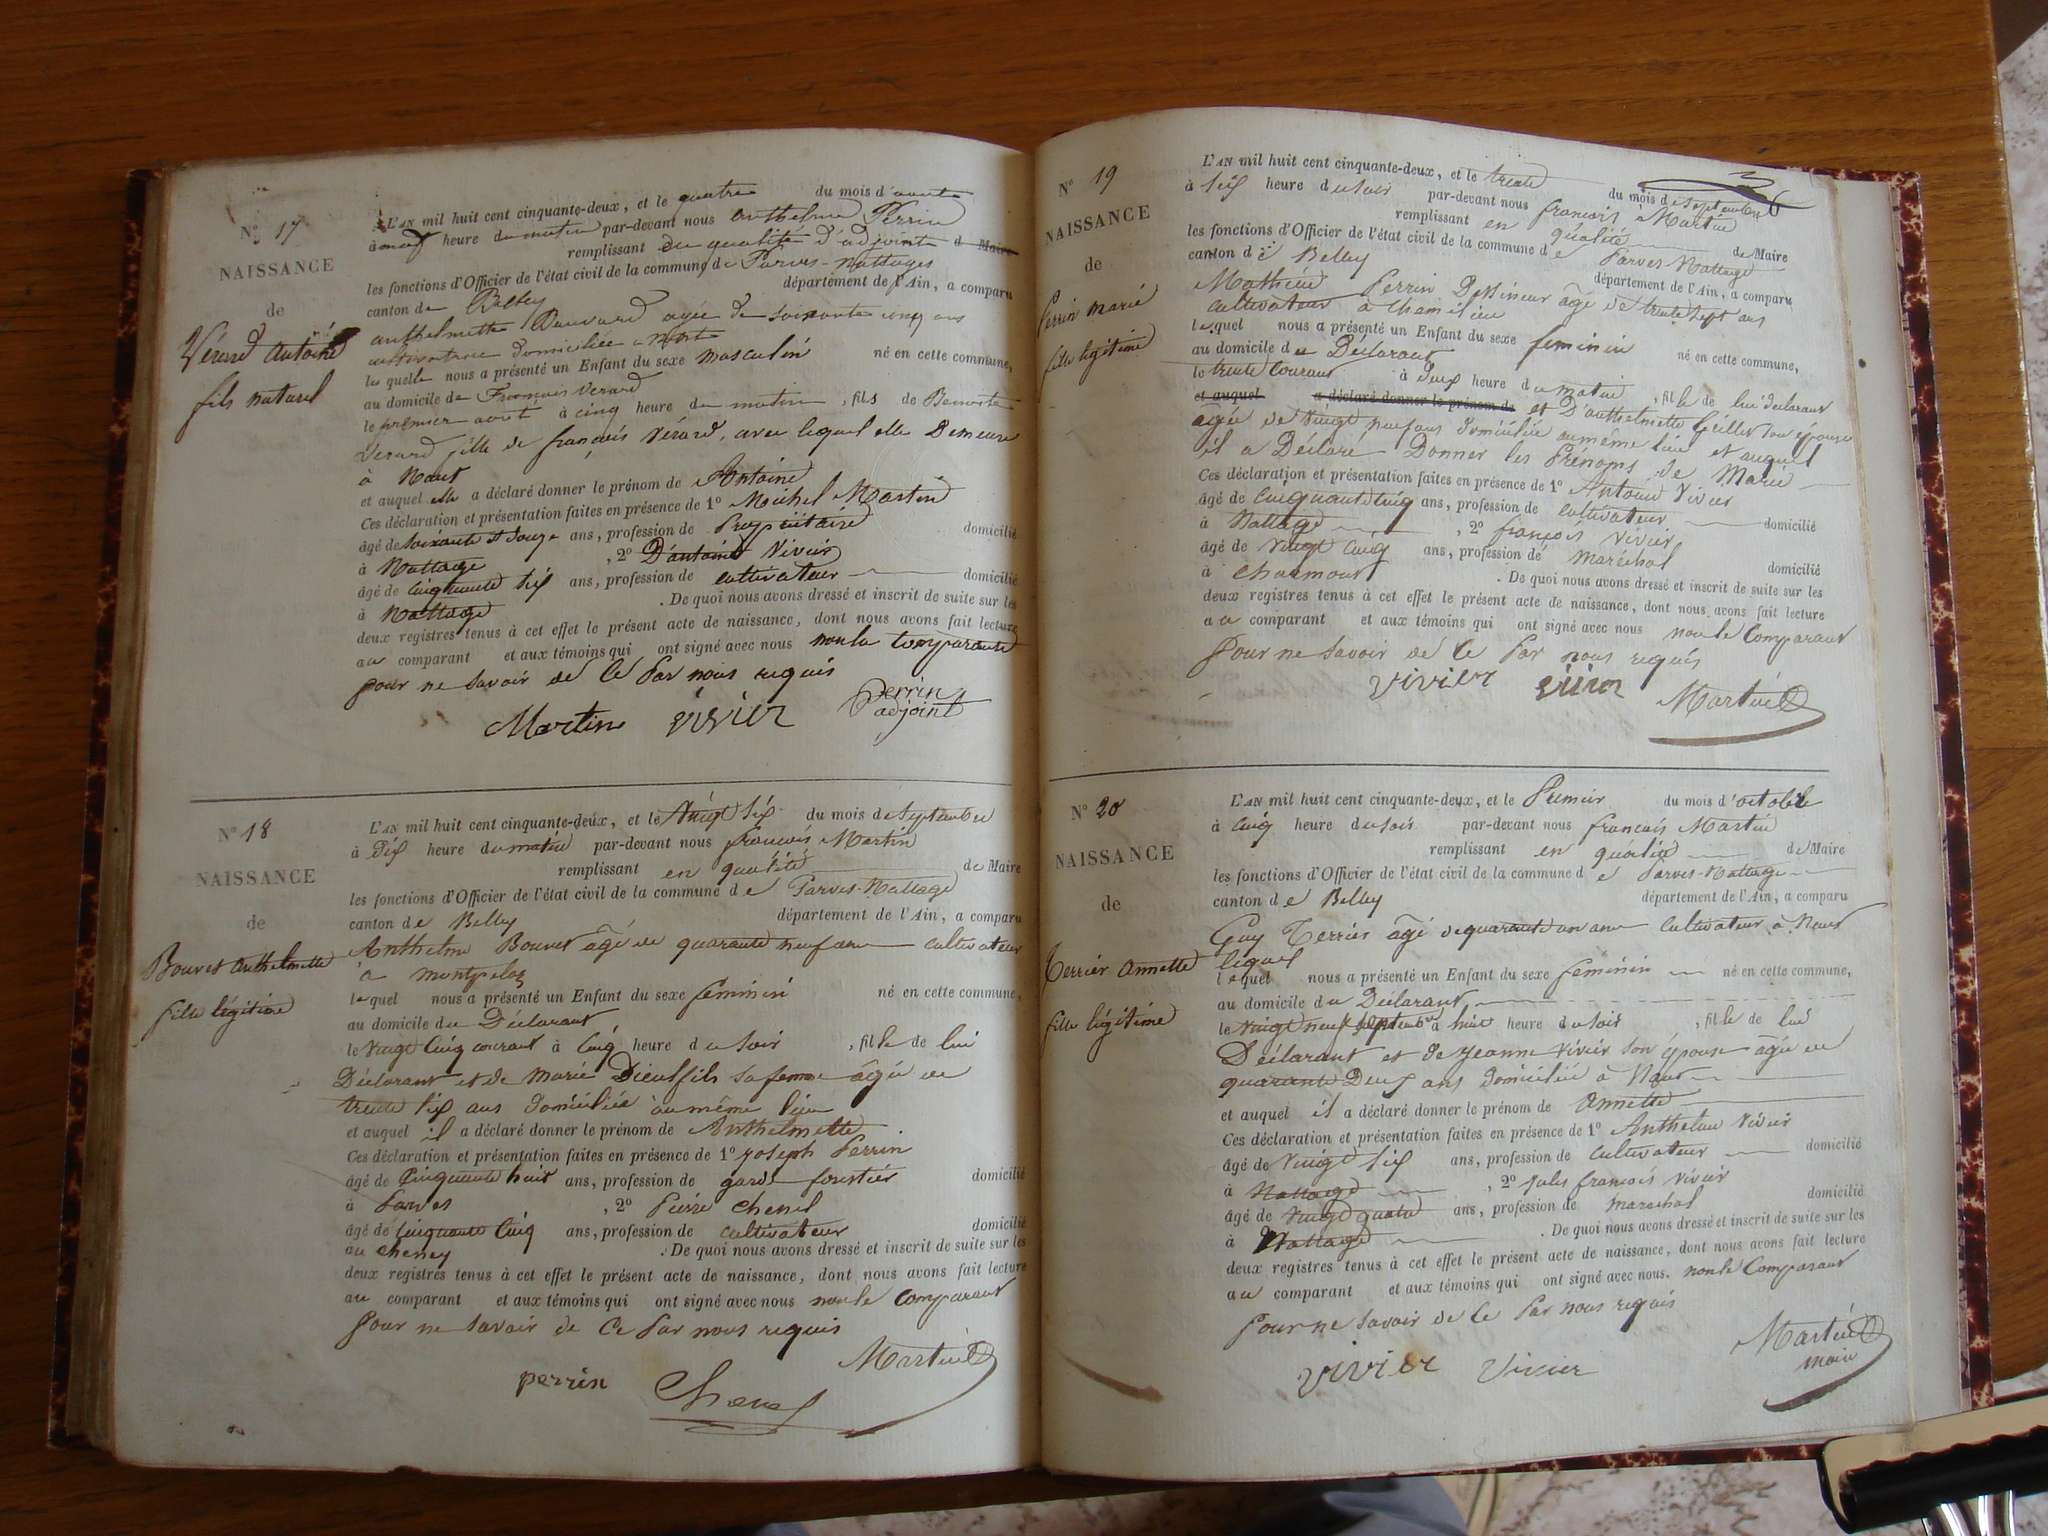 N° 17
NAISSANCE
de
Vérard Antoine
fils naturel
L'AN mil huit cent cinquante-deux, et le quatre du mois d'aoute
à neuf heure du matin par-devant nous anthelme Perrin
remplissant en qualité d'adjoint d Maire
les fonctions d'Officier de l'état civil de la commune de Parves-Nattages
canton de Belley département de l'Ain, a comparu
anthelmette agée de soixante cinq ans
cultivatrice domiciliée a
la quelle nous a présenté un Enfant du sexe masculin né en cette commune,
au domicile de Francois Verard
le premier aout à cinq heure du matin, fils de Benoite
Verard fille de françois Vérard, avec lequel elle Demeure
à
et auquel elle a déclaré donner le prénom de Antoine
Ces déclaration et présentation faites en présence de 1° Michel Martin
âgé de soixante et douze ans, profession de Propriétaire domicilié
à Nattage, 2° D'antoine Vivier
âgé de Cinquante six ans, profession de cultivateur domicilié
à Nattage. De quoi nous avons dressé et inscrit de suite sur les
deux registres tenus à cet effet le présent acte de naissance, dont nous avons fait lecture
au comparant et aux témoins qui ont signé avec nous non la Comparante
pour ne savoir de ce Par nous requis
Martin vivier Perrin
adjoint
N° 18
NAISSANCE
de
Bouvet Anthelmette
fille légitime
L'AN mil huit cent cinquante-deux, et le Vingt six du mois de Septembre
à Dix heure du matin par-devant nous françois Martin
remplissant en qualité de Maire
les fonctions d'Officier de l'état civil de la commune de Parves-Nattage
canton de Belley département de l'Ain, a comparu
Anthelme Bouvet âgé de quarante neuf ans cultivateur
a
lequel nous a présenté un Enfant du sexe féminin né en cette commune,
au domicile du Déclarant
le Vingt Cinq courant à Cinq heure du soir, fille de lui
Déclarant et de Marie Dieulfils sa femme âgée de
trente six ans domiciliée au même lieu
et auquel il a déclaré donner le prénom de Anthelmette
Ces déclaration et présentation faites en présence de 1° Joseph Perrin
âgé de Cinquante huit ans, profession de garde forestier domicilié
à Parves, 2° Pierre Chenel
âgé de Cinquante Cinq ans, profession de cultivateur domicilié
au cheney. De quoi nous avons dressé et inscrit de suite sur les
deux registres tenus à cet effet le présent acte de naissance, dont nous avons fait lecture
au comparant et aux témoins qui ont signé avec nous non le Comparant
Pour ne savoir de Ce Par nous requis
perrin Chenel Martin
N° 19
NAISSANCE
de
Perrin Marie
fille légitime
L'AN mil huit cent cinquante-deux, et le trente du mois de Septembre
à six heure du soir par-devant nous françois Martin
remplissant en qualité de Maire
les fonctions d'Officier de l'état civil de la commune de Parves-Nattage
canton de Belley département de l'Ain, a comparu
Mathieu Perrin âgé de trente sept ans
cultivateur à Chemilieu
lequel nous a présenté un Enfant du sexe feminin né en cette commune,
au domicile du Déclarant
le trente Courant à Deux heure du matin, fille de lui déclarant
et auquel a déclaré donner le prénom de et D'anthelmette son épouse
agée de Vingt neuf ans domiciliée au même lieu et auquel
il a Déclaré Donner les Prénoms de Marie
Ces déclaration et présentation faites en présence de 1° Antoine Vivier
âgé de Cinquante Cinq ans, profession de cultivateur domicilié
à Nattage, 2° françois Vivier
âgé de Vingt Cinq ans, profession de maréchal domicilié
à Charmont. De quoi nous avons dressé et inscrit de suite sur les
deux registres tenus à cet effet le présent acte de naissance, dont nous avons fait lecture
au comparant et aux témoins qui ont signé avec nous non le Comparant
Pour ne savoir de Ce Par nous requis
vivier vivier Martin
N° 20
NAISSANCE
de
Terrier Annette
fille légitime
L'AN mil huit cent cinquante-deux, et le Premier du mois d'octobre
à Cinq heure du soir par-devant nous françois Martin
remplissant en qualité de Maire
les fonctions d'Officier de l'état civil de la commune de Parves-Nattage
canton de Belley département de l'Ain, a comparu
Guy Terrier âgé de quarante un ans Cultivateur à
lequel
lequel nous a présenté un Enfant du sexe féminin né en cette commune,
au domicile du Déclarant
le Vingt neuf septembre à huit heure du soir, fille de lui
Déclarant et de Jeanne Vivier son épouse âgée de
quarante Deux ans domiciliée à
et auquel il a déclaré donner le prénom de Annette
Ces déclaration et présentation faites en présence de 1° Anthelme Vivier
âgé de Vingt six ans, profession de Cultivateur domicilié
à Nattage, 2° Jules françois Vivier
âgé de Vingt quatre ans, profession de marechal domicilié
à Nattage. De quoi nous avons dressé et inscrit de suite sur les
deux registres tenus à cet effet le présent acte de naissance, dont nous avons fait lecture
au comparant et aux témoins qui ont signé avec nous. non le Comparant
Pour ne savoir de Ce Par nous requis
vivier Vivier Martin
maire